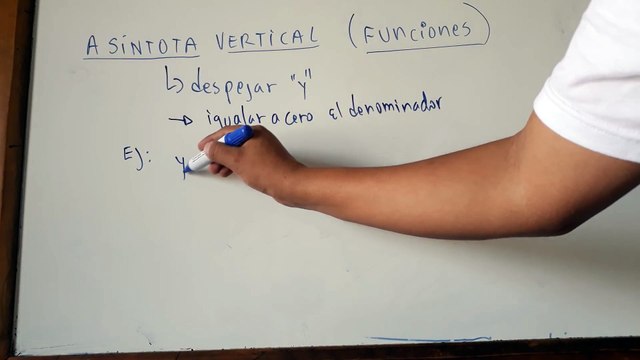 ASÍNTOTA VERTICAL (FUNCIONES)
↳ despejar "y"
→ igualar a cero el denominador
Ej: y